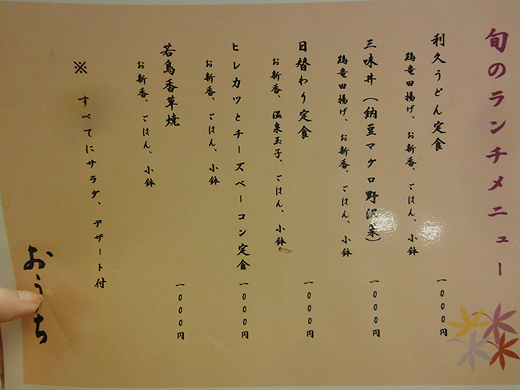 旬のランチメニュー
利久うどん定食 一000円
鶏竜田揚げ、お新香、ごはん、小鉢
三味丼(納豆マグロ野沢菜) 一000円
鶏竜田揚げ、お新香、ごはん、小鉢
日替わり定食 一000円
お新香、温泉玉子、ごはん、小鉢
ヒレカツとチーズベーコン定食 一000円
お新香、ごはん、小鉢
若鳥香草焼 一000円
お新香、ごはん、小鉢
※ すべてにサラダ、デザート付
おうち